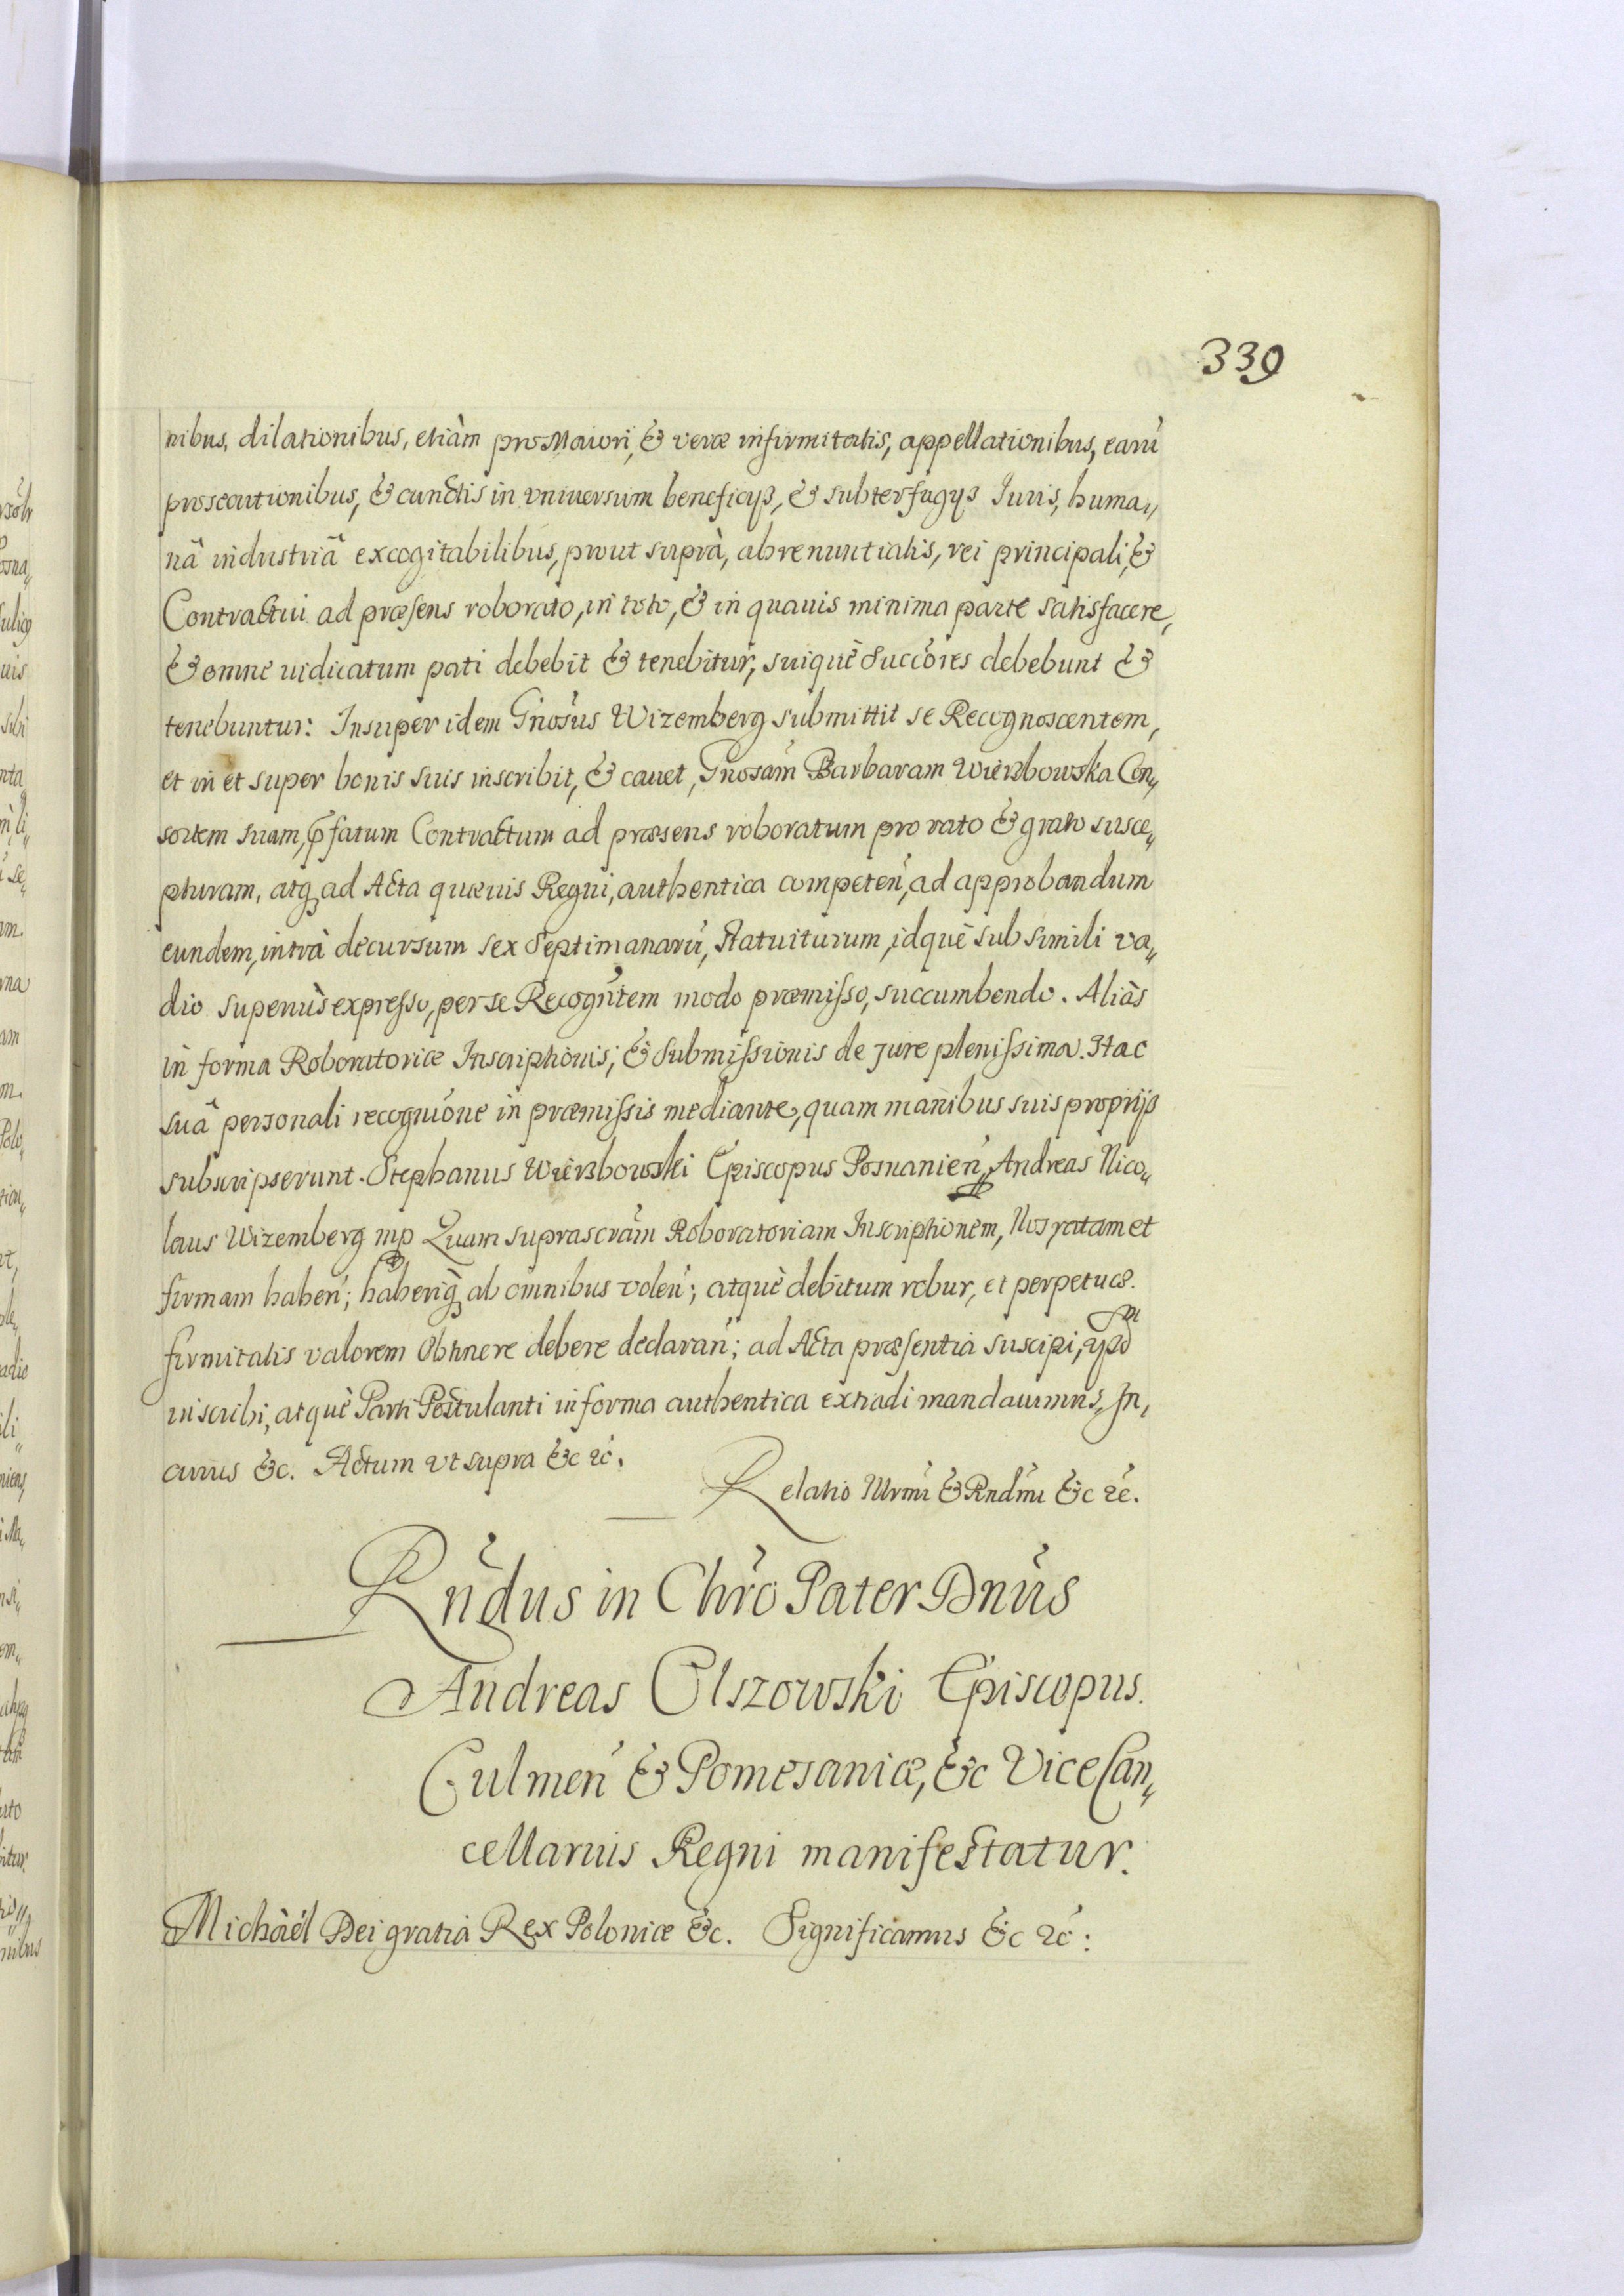 339
nibus, dilationibus, etiàm pro Maiori, & veræ infirmitatis, appellationibus, earū
prosecutionibus, & cunctis in vniuersum beneficijs, & subterfugijs Iuris, huma„
nâ industriâ excogitabilibus, prout suprà, abrenuntiatis, rei principali, &
Contractui ad præsens roborato, in toto, & in quauis minima parte satisfacere,
& omne iudicatum pati debebit & tenebitur, suiquè Succores debebunt &
tenebuntur: Insuper idem Gnosus Wizemberg submittit se Recognoscentem,
et in et super bonis suis inscribit, & cauet, Gnosam Barbaram Wierzbowska Con„
sortem suam, pfatum Contractum ad præsens roboratum pro rato & grato susce„
pturam, atq ad Acta quæuis Regni, authentica competen, ad approbandum
eundem, intrà decursum sex Septimanarū, Statuiturum, idquè sub simili va„
dio superiùs expresso, per se Recogntem modo præmisso, succumbendo. Aliàs
in forma Roboratoriæ Inscriptionis, & Submissionis de jure plenissima. Hac
suâ personali recognione in præmissis mediante, quam manibus suis proprijs
subscripserunt. Stephanus Wierzbowski Episcopus Posnanien, Andreas Nico„
laus Wizemberg mp Quam suprascram Roboratoriam Inscriptionem, Nos ratam et
firmam haben; haberiq ab omnibus volen; atquè debitum robur, et perpetuæ
firmitatis valorem Obtinere debere declaran; ad Acta præsentia suscipi,
inscribi, atquè Parti Postulanti in forma authentica extradi mandauimus, In„
cuius &c. Actum vt supra &c ꝛc.
Relatio Illrmi & Rndmi &c ꝛc.
Rndus in Chro Pater Dnus
Andreas Olszowski Episcopus
Culmen & Pomesaniæ, &c ViceCan„
cellarius Regni manifestatur.
Michàél Dei gratià Rex Poloniæ &c. Significamus &c ꝛc: